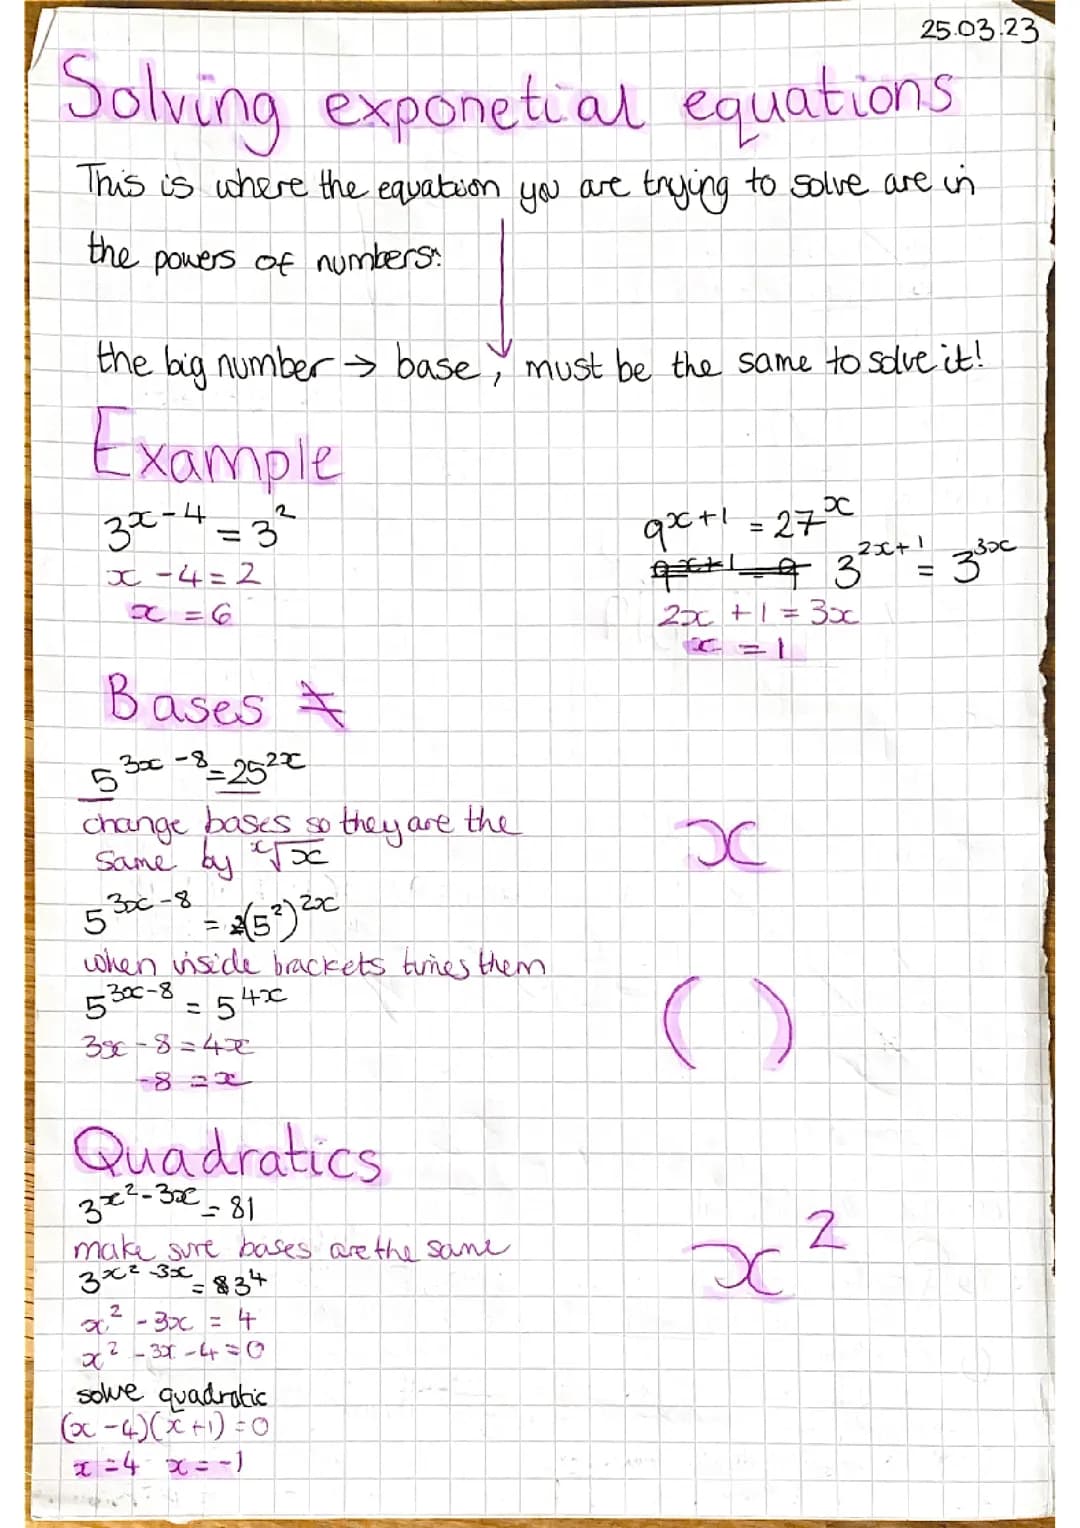 25.03.23
Solving exponetial equations
This is where the equation you are trying to solve are in
the powers of numbers:
the big number → base, must be the same to solve it!
Example
3^{x-4} = 3^2
x - 4 = 2
x = 6
9^{x+1} = 27^x
3^{2x+1} = 3^{3x}
2x + 1 = 3x
x = 1
Bases ≠
5^{3x-8} = 25^{2x}
change bases so they are the
same by ˣ√x
x
5^{3x-8} = (5^2)^{2x}
when inside brackets times them
5^{3x-8} = 5^{4x}
( )
3x - 8 = 4x
-8 = x
Quadratics
3^{x^2-3x} = 81
make sure bases are the same
x^2
3^{x^2-3x} = 3^4
x^2 - 3x = 4
x^2 - 3x - 4 = 0
solve quadratic
(x - 4)(x + 1) = 0
x = 4 x = -1